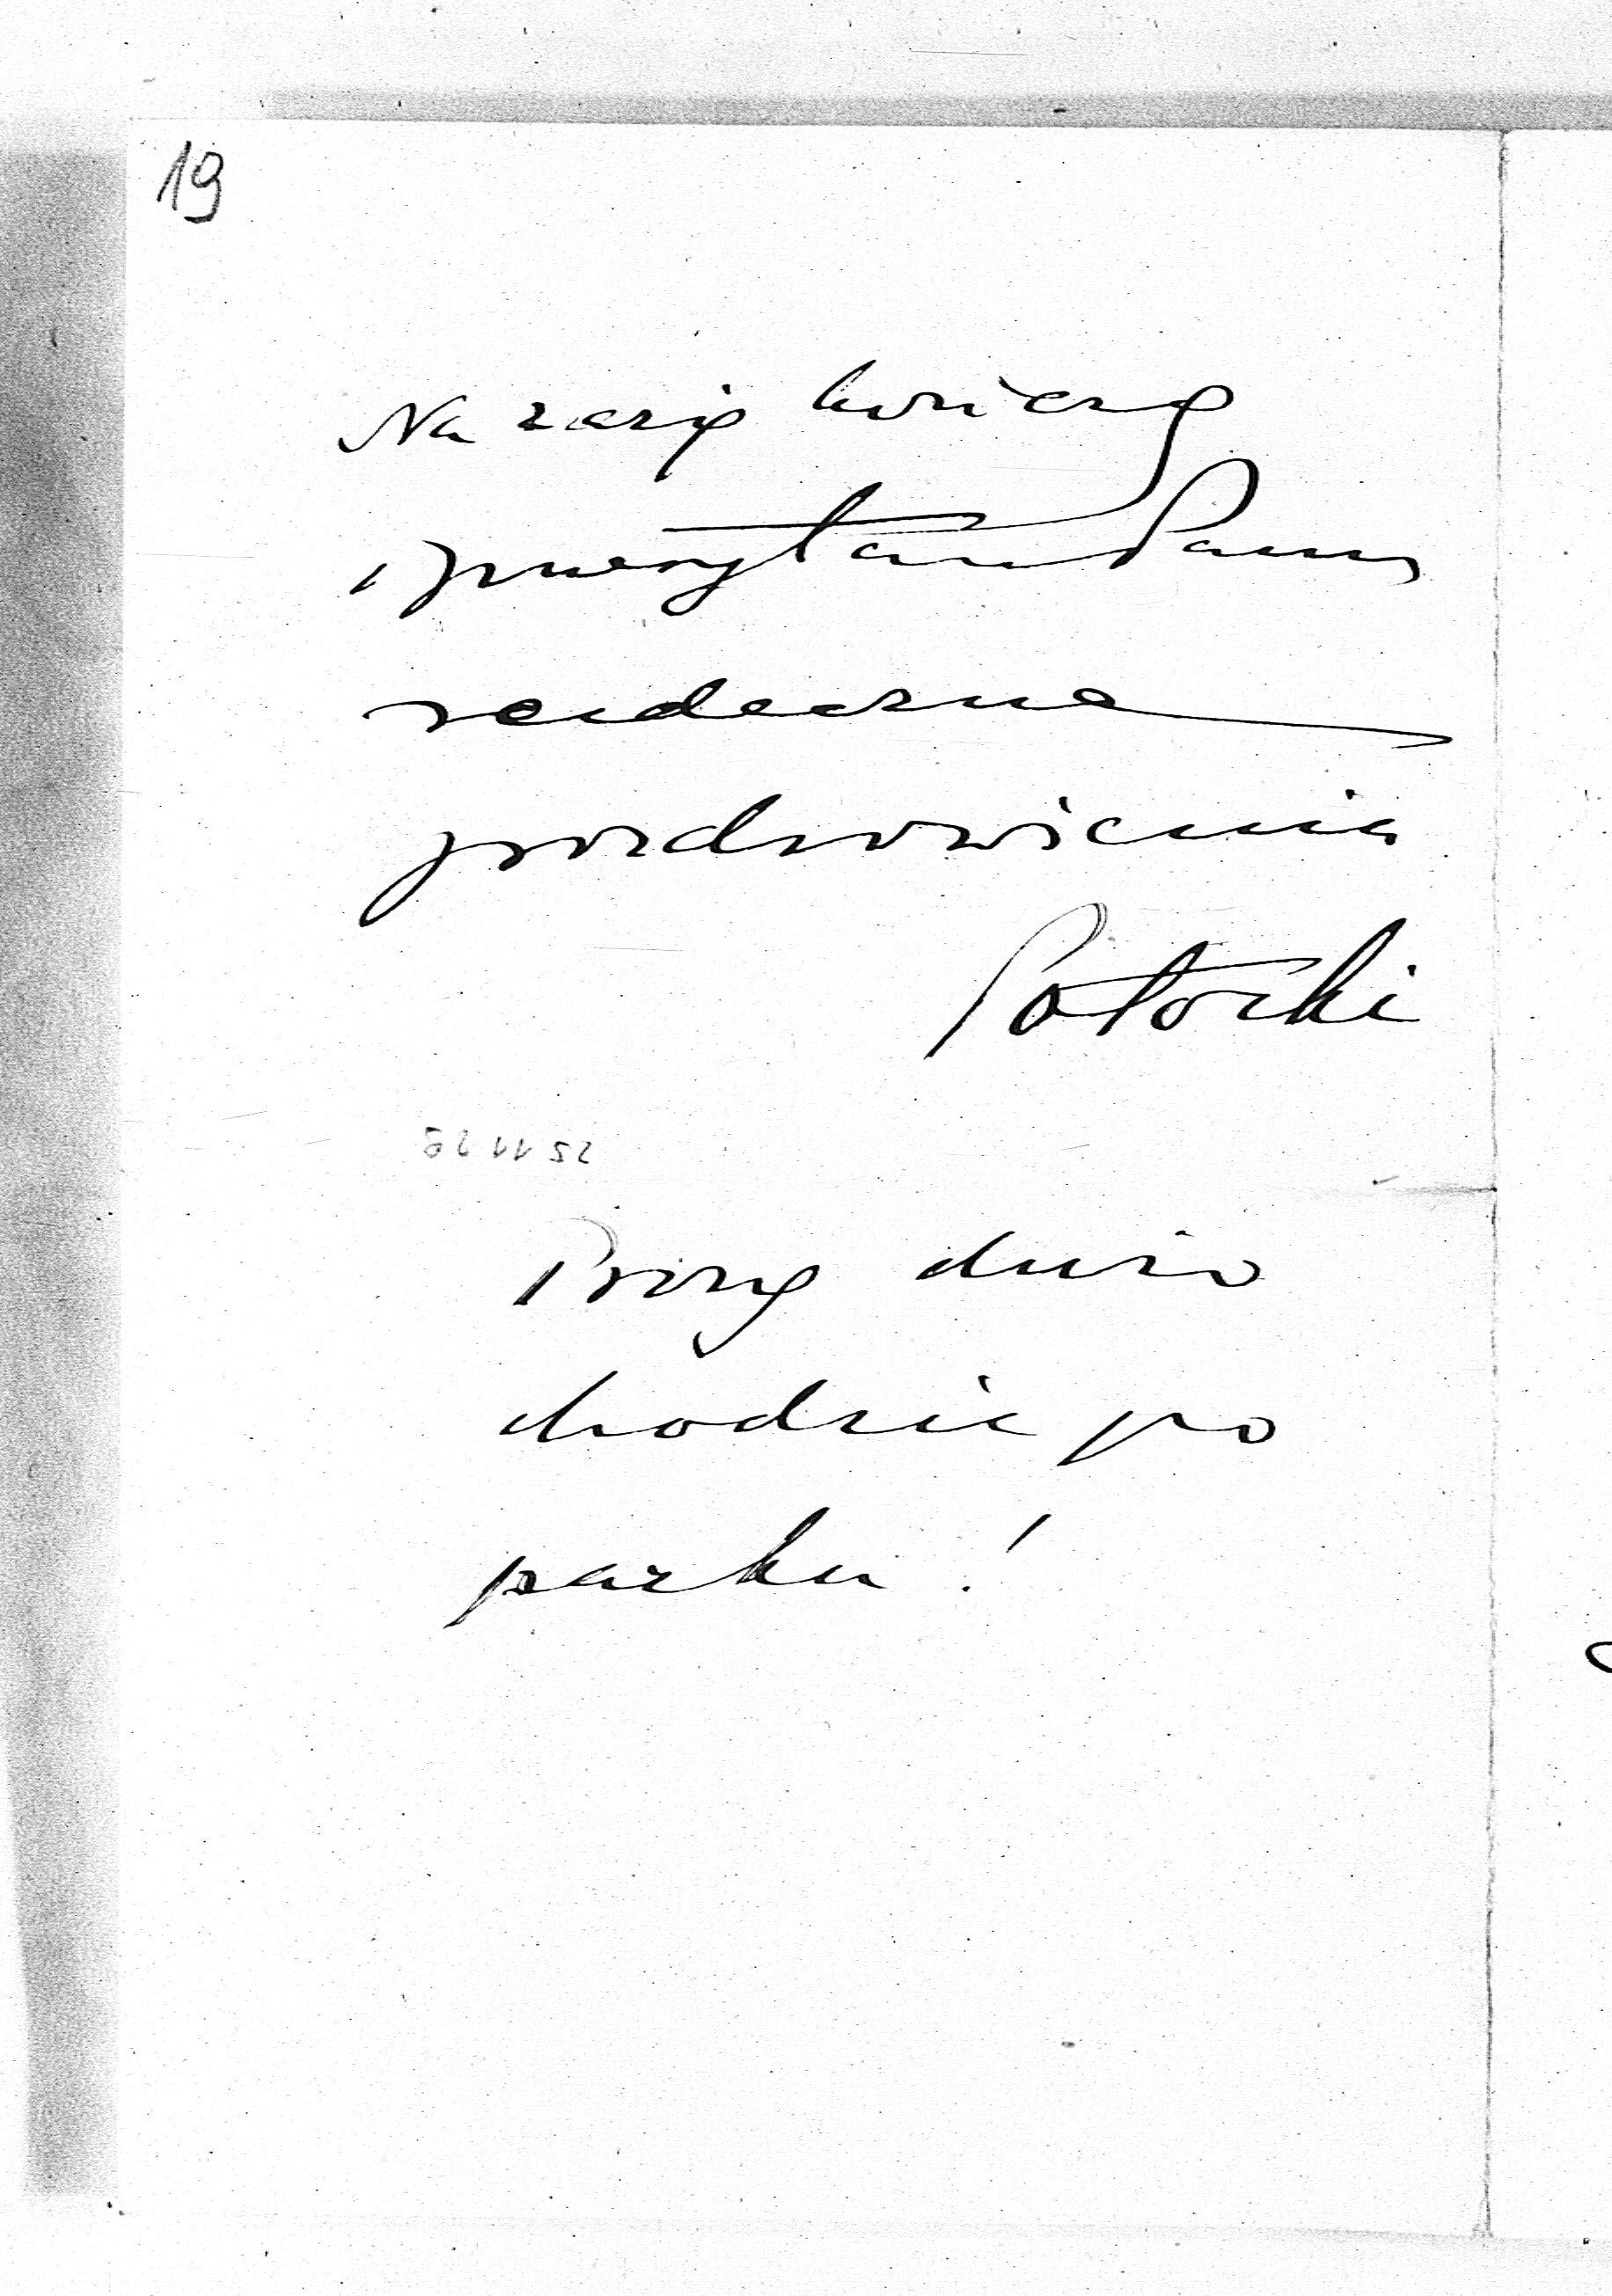 19
Na razie kończę
i przesyłam Panu
serdeczne
pozdrowienia
Potocki
Proszę dużo
chodzić po
parku!